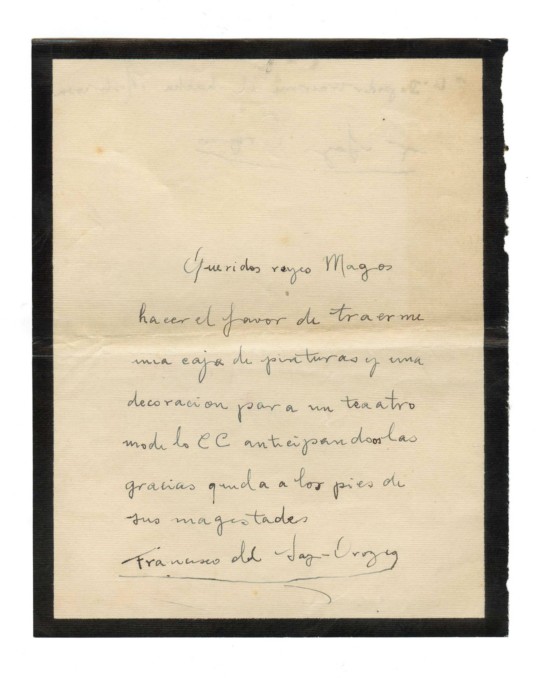 Queridos reyes Magos
hacer el favor de traerme
una caja de pinturas y una
decoracion para un teaatro
mode lo CC anticipandoos las
gracias queda a los pies de
sus magestades
Francisco del